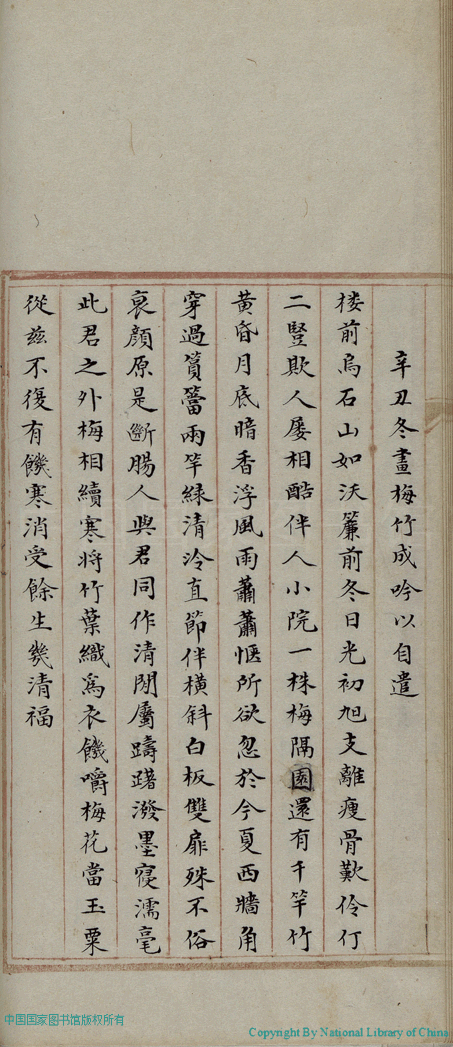 辛丑冬畫梅竹成吟以自遣
楼前烏石山如沃簾前冬日光初旭支離瘦骨歎伶仃
二豎欺人屡相酷伴人小院一株梅隔園還有千竿竹
黄昏月底暗香浮風雨蕭蕭愜所欲忽於今夏西牆角
穿過篔簹兩竿綠清泠直節伴横斜白板雙扉殊不俗
衰顔原是斷腸人與君同作清閒屬躊躇潑墨寖濡毫
此君之外梅相續寒将竹葉織爲衣饑嚼梅花當玉粟
從兹不復有饑寒消受餘生幾清福
中国国家图书馆版权所有
Copyright By National Library of China